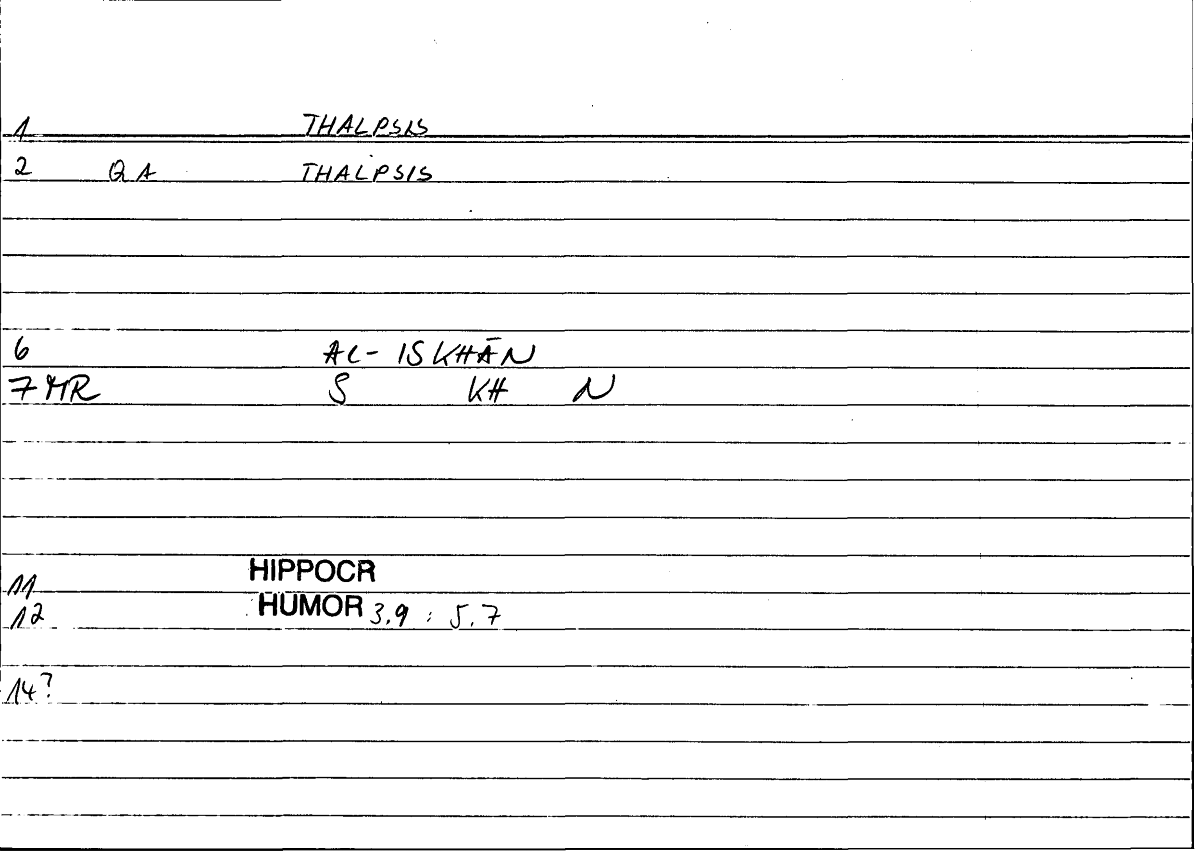 1 THALPSIS
2 QA THALPSIS
6 AL-ISKHĀN
7 MR S KH N
11 HIPPOCR
12 HUMOR 3,9 : 5.7
14?